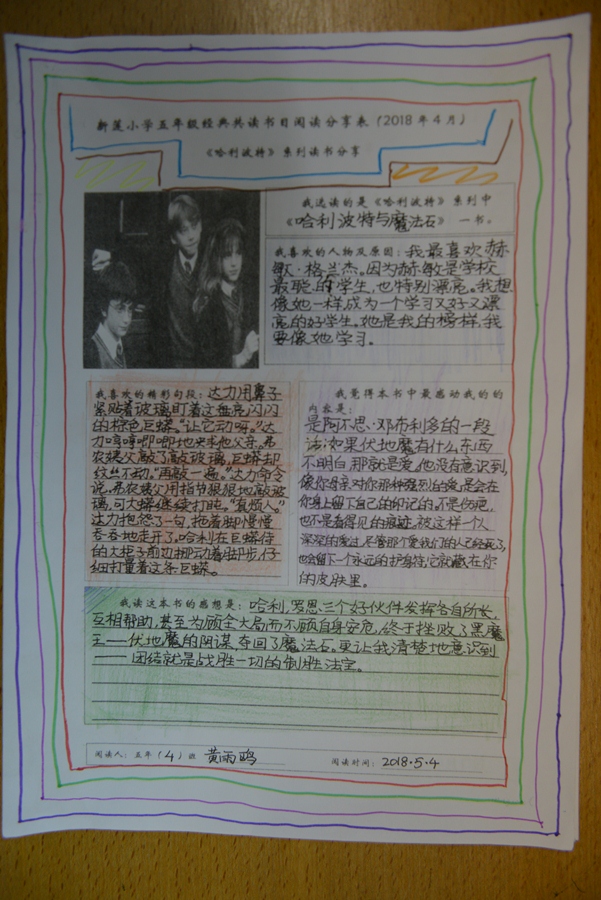 新莲小学五年级经典共读书目阅读分享表（2018年4月）
《哈利波特》系列读书分享
我选读的是《哈利波特》系列中
《哈利波特与魔法石》一书。
我喜欢的人物及原因：我最喜欢赫
敏·格兰杰。因为赫敏是学校
最聪的学生，也特别漂亮。我想
像她一样成为一个学习又好又漂
亮的好学生。她是我的榜样，我
要像她学习。
我喜欢的精彩句段：达力用鼻子
紧贴着玻璃盯着这盘亮闪闪
的棕色巨蟒。“让它动呀。”达
力哼哼唧唧地央求他父亲。弗
农姨父敲了敲玻璃，巨蟒却
纹丝不动。“再敲一遍。”达力命令
说。弗农姨父用指节狠狠地敲玻
璃，可大蟒继续打盹。“真烦人。”
达力抱怨了一句，拖着脚慢慢
吞吞地走开了。哈利在巨蟒待
的大柜子前边挪动着脚步，仔
细打量着这条巨蟒。
我觉得本书中最感动我的的
内容是：
是阿不思·邓布利多的一段
话：如果伏地魔有什么东西
不明白，那就是爱。他没有意识到，
像你母亲对你那种强烈的爱，是会在
你身上留下自己的印记的。不是伤疤，
也不是看得见的痕迹。被这样一个人
深深的爱过，尽管那个爱我们的人已经死了，
也会留下一个永远的护身符。它就藏在你
的皮肤里。
我读这本书的感想是：哈利，罗恩，三个好伙伴发挥各自所长，
互相帮助，甚至为顾全大局而不顾自身安危，终于挫败了黑魔
王——伏地魔的阴谋，夺回了魔法石。更让我清楚地意识到
——团结就是战胜一切的制胜法宝。
阅读人：五年（4）班 黄雨鸥 阅读时间：2018.5.4